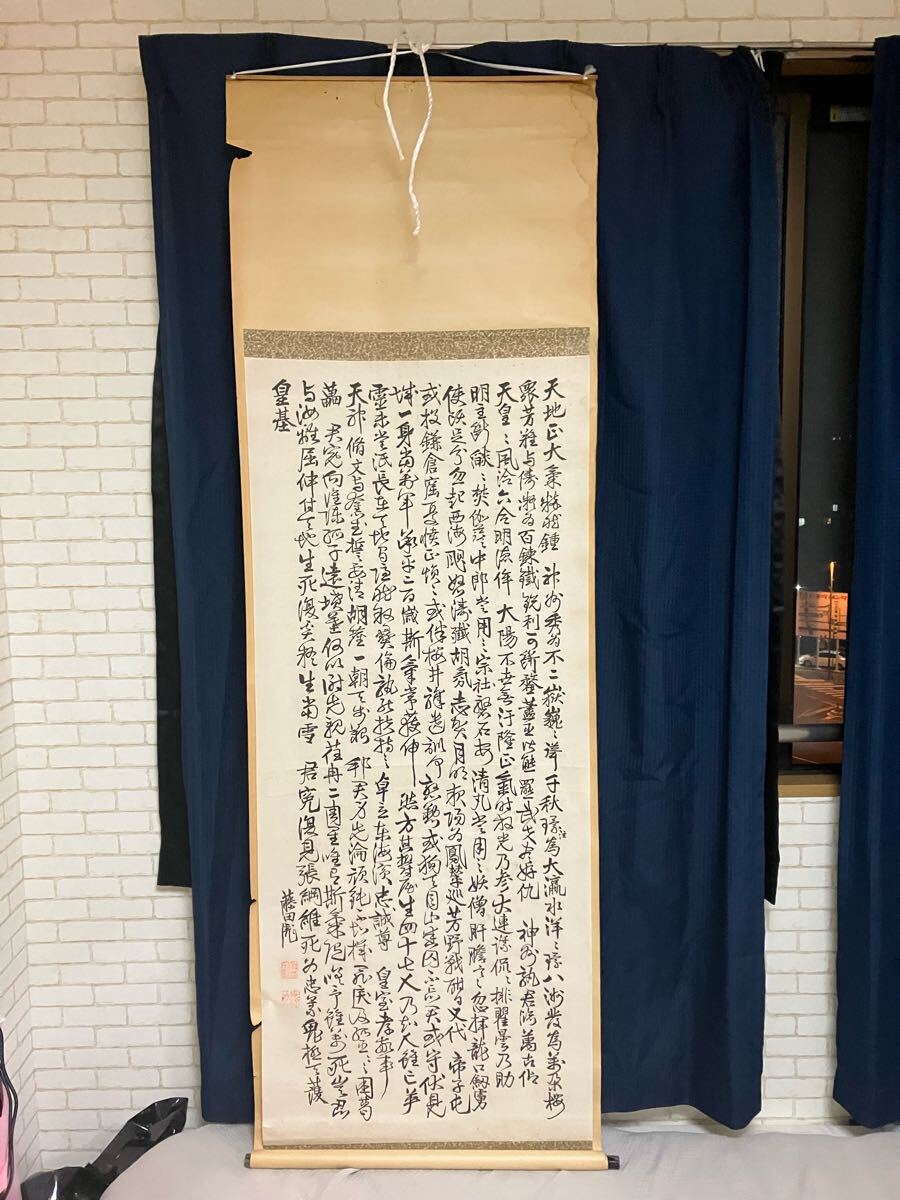 天地正大氣粋然鍾 神州秀為不二嶽巍〻聳千秋注為大瀛水洋〻環八洲發為萬朶桜
衆芳難与儔凝為百錬鐵鋭利可断鍪藎臣皆熊羆武夫盡好仇 神州孰君臨萬古仰
天皇〻風洽六合明德侔 大陽不世無汙隆正氣時放光乃参大連議侃〻排瞿曇乃助
明主断燄〻焚伽藍中郎嘗用之宗社磐石安清丸嘗用之妖僧肝膽寒忽揮龍口劔虜
使頭足分忽起西海颶怒濤殲胡氛志賀月明夜陽為鳳輦巡芳野戦酣日又代 帝子屯
或投鎌倉窟憂憤正愪〻或伴桜井驛遺訓何慇懃或殉天目山幽囚不忘君或守伏見
城一身当萬軍承平二百歳斯氣常獲伸然方其鬱屈生四十七人乃知人雖亡英
霊未嘗泯長在天地間隠然叙彝倫孰能扶持之卓立東海濱忠誠尊 皇室孝敬事
天神脩文与奮武誓欲清胡塵一朝天歩艱邦君身先淪頑鈍不知機罪戻及孤臣〻〻困葛
藟 君冤向誰陳孤子遠墳墓何以謝先親荏苒二周星唯有斯氣随嗟予雖萬死豈忍
与汝離屈伸付天地生死復奚疑生当雪 君冤復見張綱維死為忠義鬼極天護
皇基
藤田彪